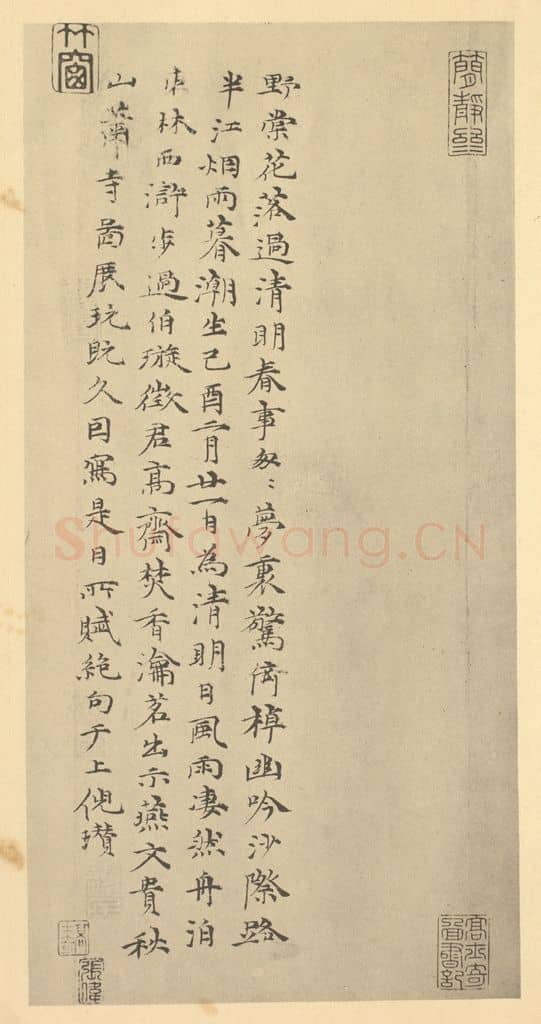 野棠花落過清明春事匆〻夢裏驚倚棹幽吟沙際路
半江烟雨暮潮生己酉二月廿一日為清明日風雨凄然舟泊
東林西滸步過伯璇徵君高齋焚香瀹茗出示燕文貴秋
山蕭寺圖展玩既久因寫是日所賦絶句于上倪瓚
竹窗
蕉林
高士奇圖書記
Shufawang.CN